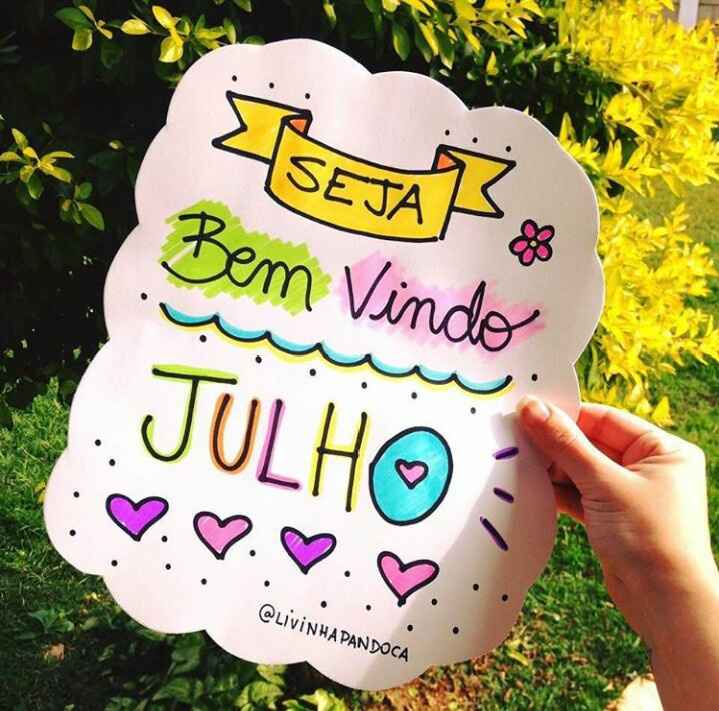 SEJA
Bem Vindo
JULHO
@LIVINHAPANDOCA